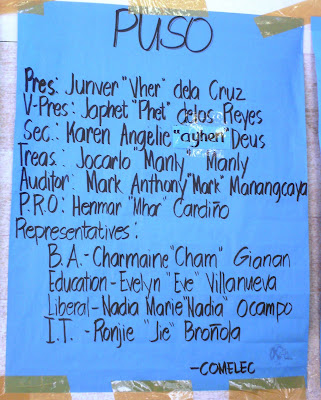 PUSO
Pres: Juriver "Vher" dela Cruz
V-Pres: Japhet "Phet" delos Reyes
Sec: Karen Angelie "aghen" Deus
Treas: Jocarlo "Manly" Manly
Auditor: Mark Anthony "Mark" Manangcaya
P.R.O: Henmar "Mhar" Cardiño
Representatives:
B.A.-Charmaine "Cham" Gianan
Education-Evelyn "Eve" Villanueva
Liberal-Nadia Marie "Nadia" Ocampo
I.T. - Ronjie "Jie" Broñola
-COMELEC